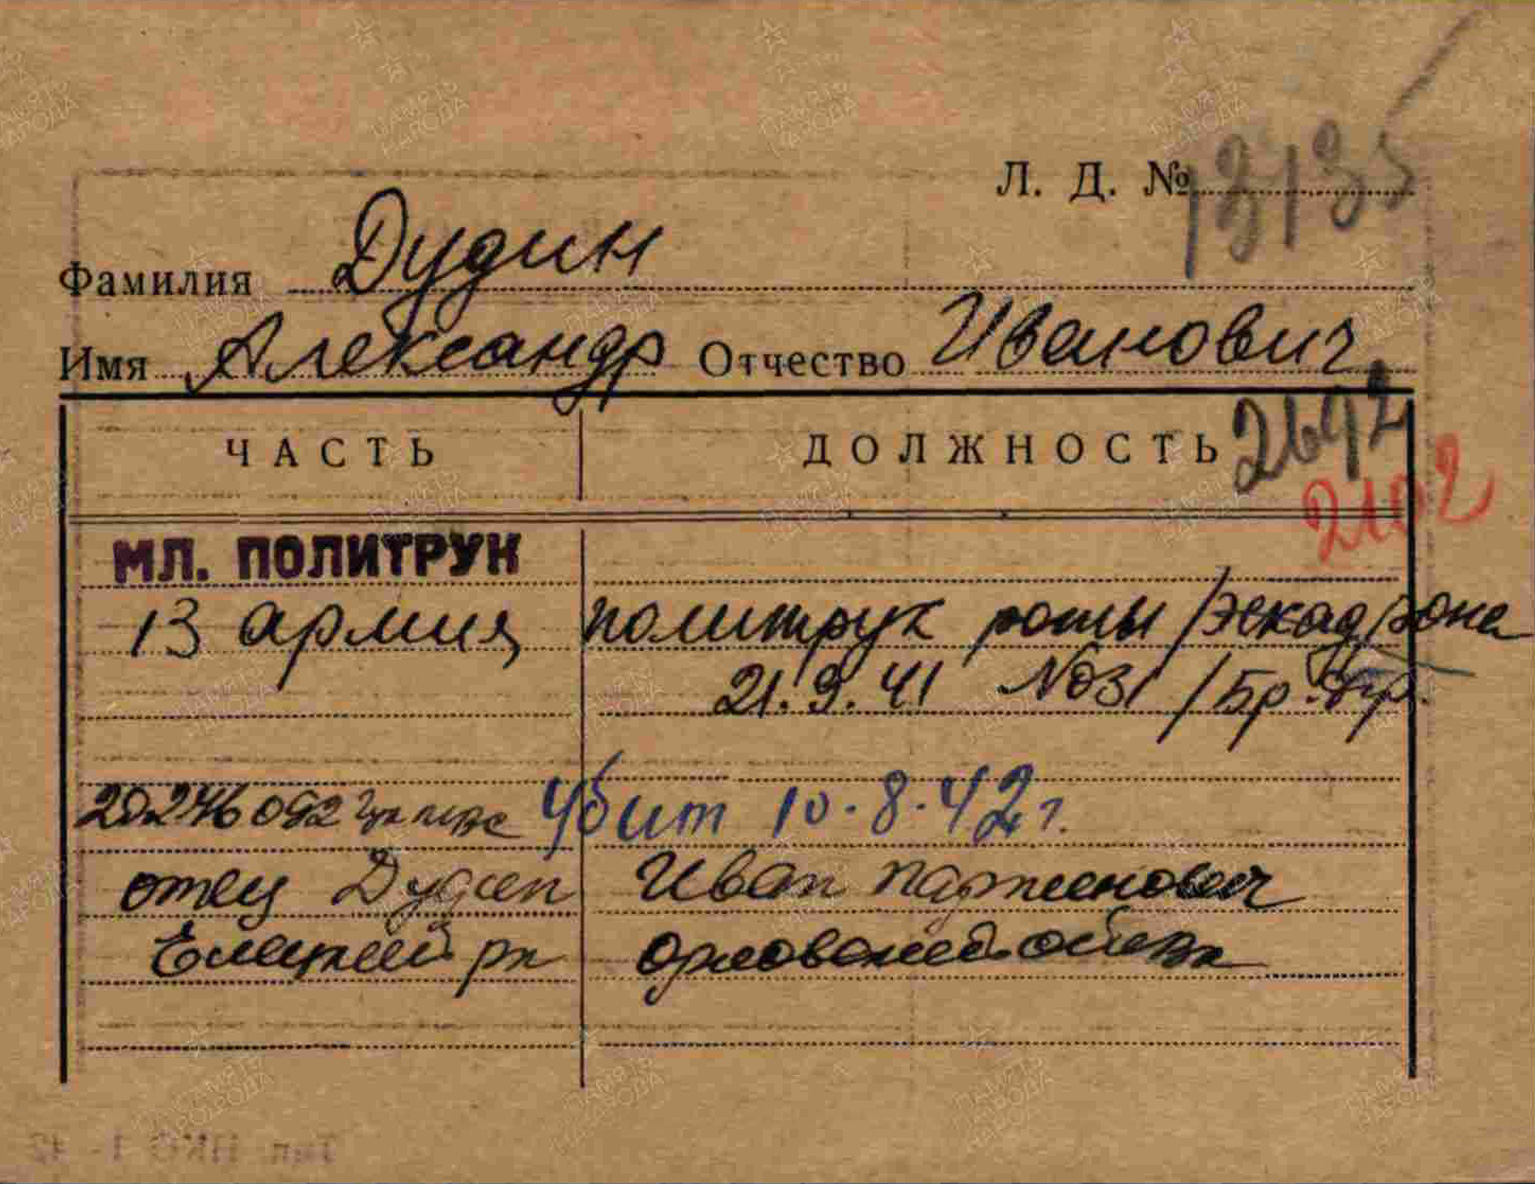 Л. Д. № 13135
Фамилия Дудин
Имя Александр Отчество Иванович
2692
ЧАСТЬ ДОЛЖНОСТЬ
2102
МЛ. ПОЛИТРУК
13 армия политрук роты /эскадрона
21.9.41 №031 /Бр.фр.
убит 10.8.42 г.
отец Дудин Иван
Елецкий рн Орловской
ПАМЯТЬ НАРОДА